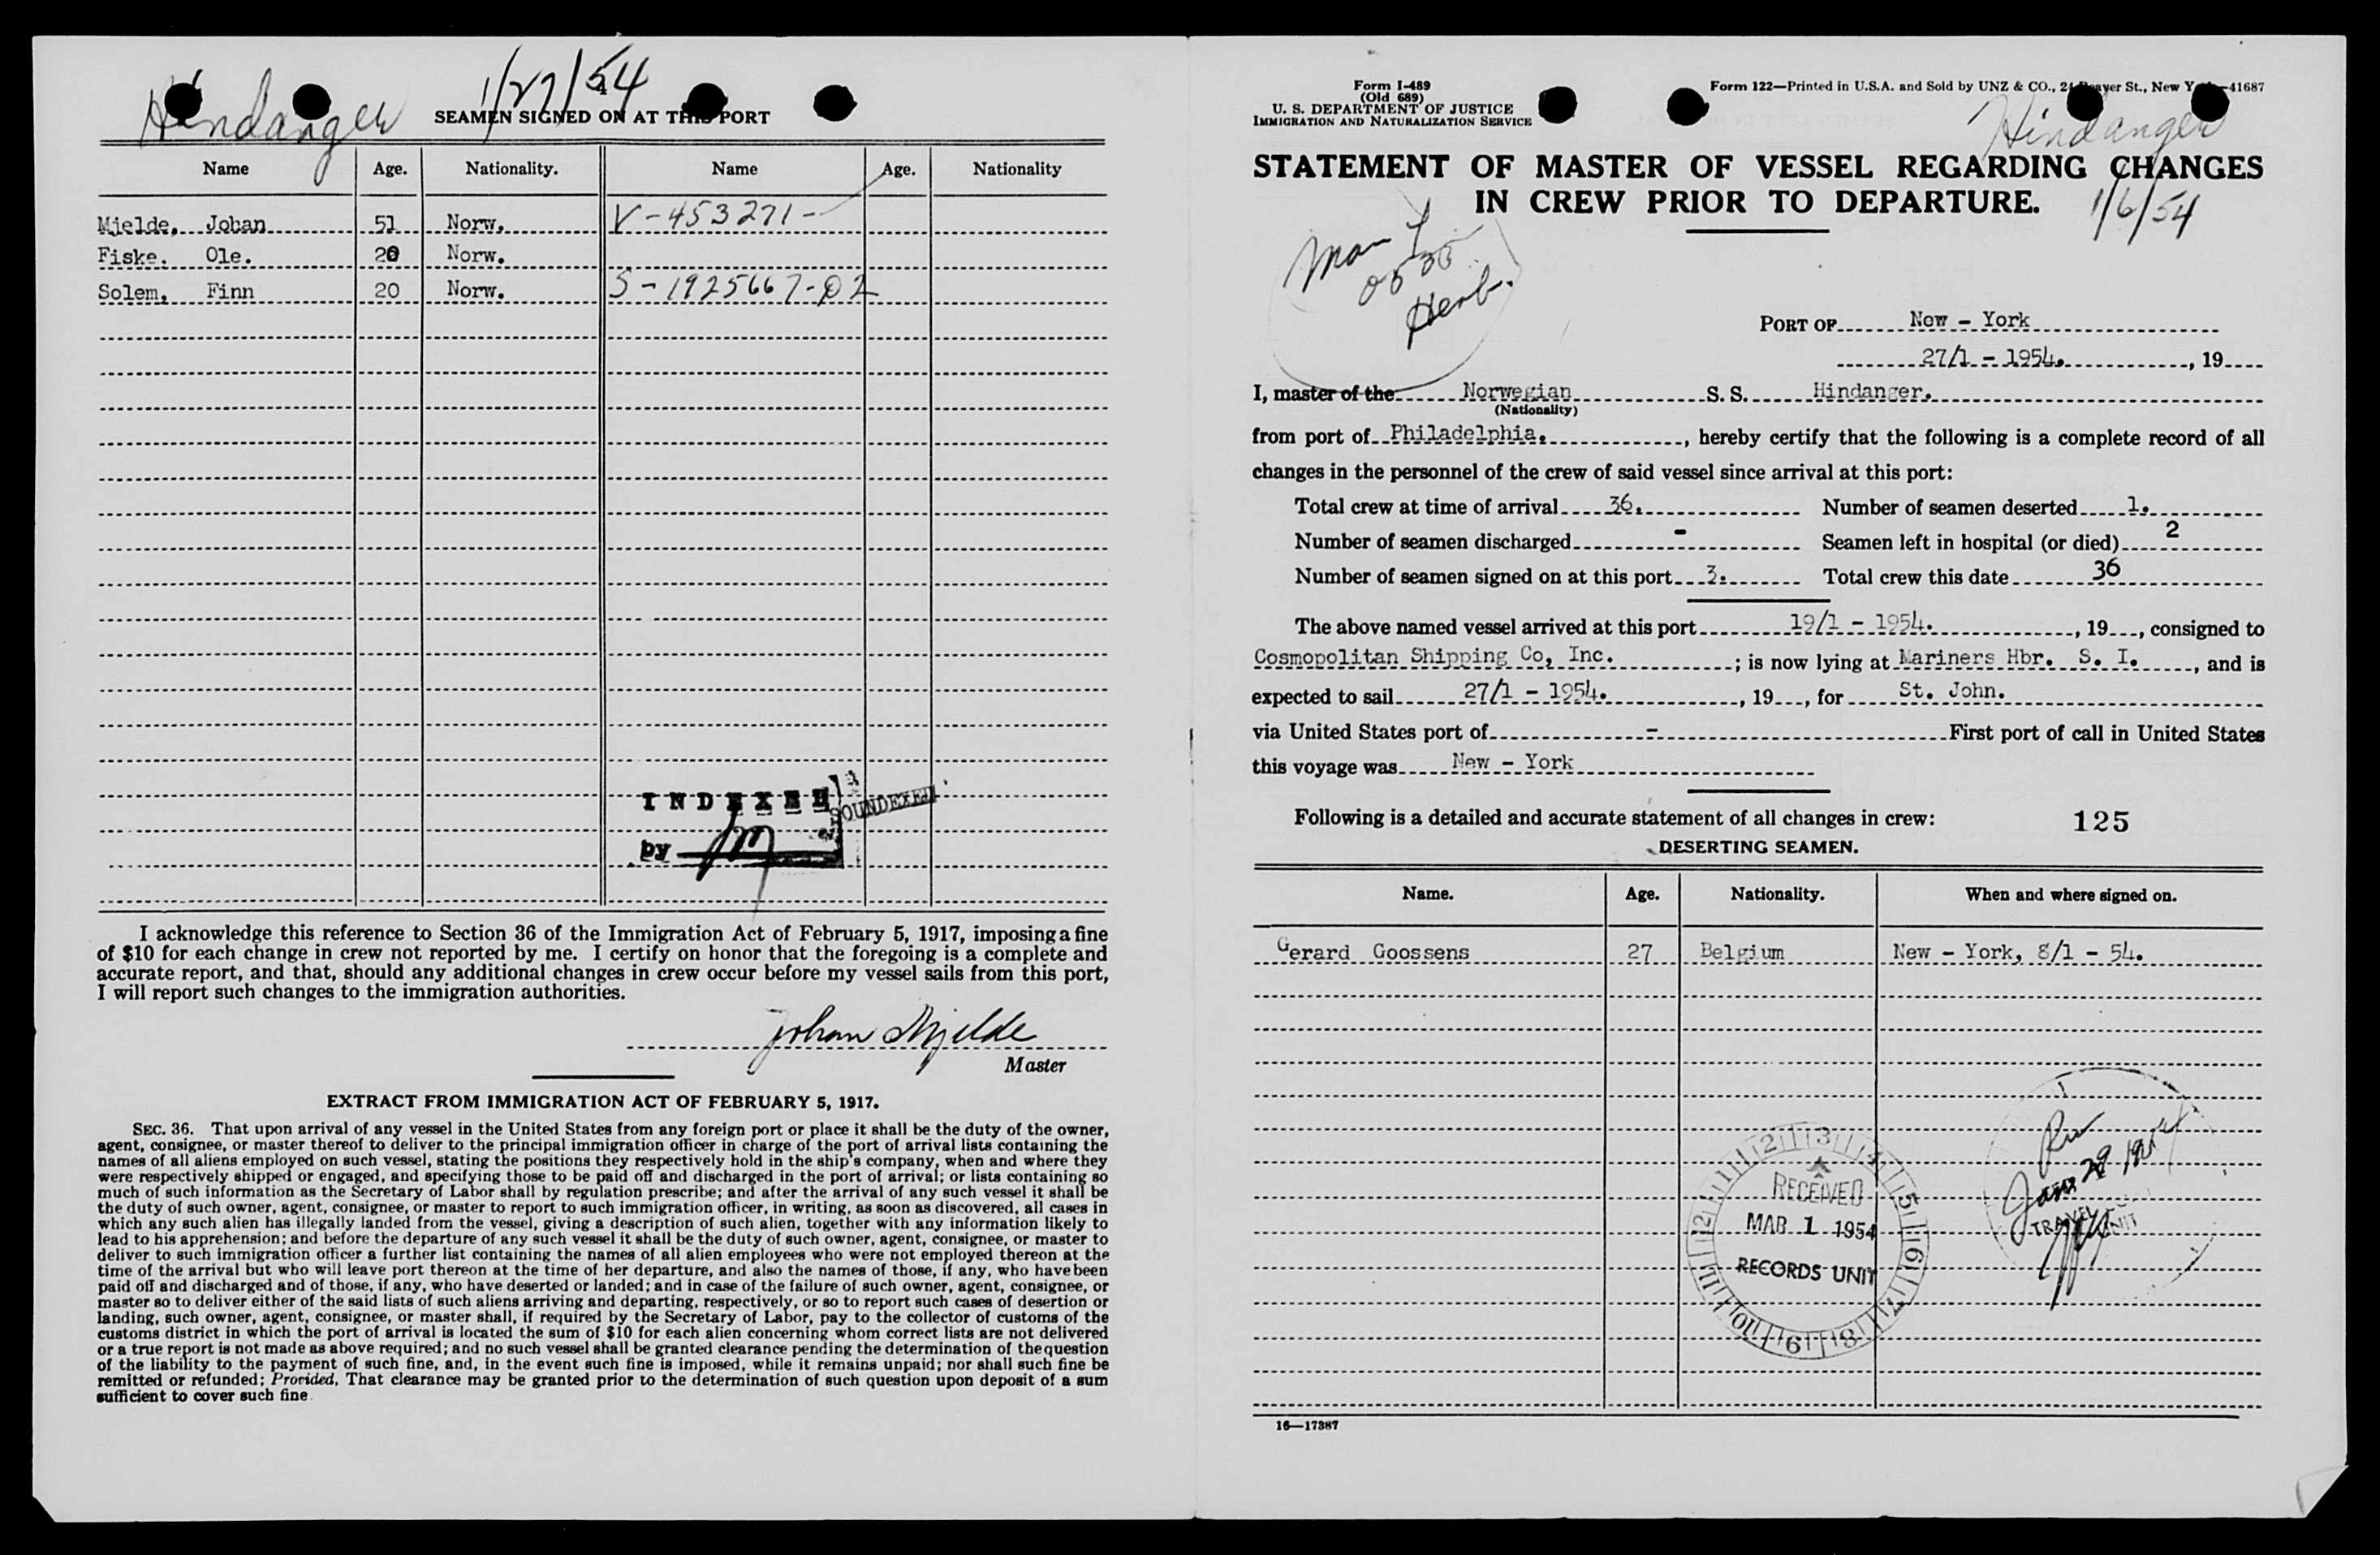 Hindanger 1/27/54
SEAMEN SIGNED ON AT THIS PORT
Name Age. Nationality. Name Age. Nationality
Mjelde, Johan 51 Norw. V-453271-
Fiske. Ole. 20 Norw.
Solem, Finn 20 Norw. S-1925667-02
INDEXED
SOUNDEXED
by
I acknowledge this reference to Section 36 of the Immigration Act of February 5, 1917, imposing a fine
of $10 for each change in crew not reported by me. I certify on honor that the foregoing is a complete and
accurate report, and that, should any additional changes in crew occur before my vessel sails from this port,
I will report such changes to the immigration authorities.
Johan Mjelde
Master
EXTRACT FROM IMMIGRATION ACT OF FEBRUARY 5, 1917.
SEC. 36. That upon arrival of any vessel in the United States from any foreign port or place it shall be the duty of the owner,
agent, consignee, or master thereof to deliver to the principal immigration officer in charge of the port of arrival lists containing the
names of all aliens employed on such vessel, stating the positions they respectively hold in the ship's company, when and where they
were respectively shipped or engaged, and specifying those to be paid off and discharged in the port of arrival; or lists containing so
much of such information as the Secretary of Labor shall by regulation prescribe; and after the arrival of any such vessel it shall be
the duty of such owner, agent, consignee, or master to report to such immigration officer, in writing, as soon as discovered, all cases in
which any such alien has illegally landed from the vessel, giving a description of such alien, together with any information likely to
lead to his apprehension; and before the departure of any such vessel it shall be the duty of such owner, agent, consignee, or master to
deliver to such immigration officer a further list containing the names of all alien employees who were not employed thereon at the
time of the arrival but who will leave port thereon at the time of her departure, and also the names of those, if any, who have been
paid off and discharged and of those, if any, who have deserted or landed; and in case of the failure of such owner, agent, consignee, or
master so to deliver either of the said lists of such aliens arriving and departing, respectively, or so to report such cases of desertion or
landing, such owner, agent, consignee, or master shall, if required by the Secretary of Labor, pay to the collector of customs of the
customs district in which the port of arrival is located the sum of $10 for each alien concerning whom correct lists are not delivered
or a true report is not made as above required; and no such vessel shall be granted clearance pending the determination of the question
of the liability to the payment of such fine, and, in the event such fine is imposed, while it remains unpaid; nor shall such fine be
remitted or refunded; Provided, That clearance may be granted prior to the determination of such question upon deposit of a sum
sufficient to cover such fine.
Form I-489
(Old 689)
U. S. DEPARTMENT OF JUSTICE
IMMIGRATION AND NATURALIZATION SERVICE
Form 122—Printed in U.S.A. and Sold by UNZ & CO., 24 St., New 41687
Hindanger
STATEMENT OF MASTER OF VESSEL REGARDING CHANGES
IN CREW PRIOR TO DEPARTURE.
1/6/54
PORT OF New - York
27/1 - 1954. , 19
I, master of the Norwegian S. S. Hindanger.
(Nationality)
from port of Philadelphia. , hereby certify that the following is a complete record of all
changes in the personnel of the crew of said vessel since arrival at this port:
Total crew at time of arrival 36. Number of seamen deserted 1.
Number of seamen discharged - Seamen left in hospital (or died) 2
Number of seamen signed on at this port 3. Total crew this date 36
The above named vessel arrived at this port 19/1 - 1954. , 19 , consigned to
Cosmopolitan Shipping Co, Inc. ; is now lying at Mariners Hbr. S. I. , and is
expected to sail 27/1 - 1954. , 19 , for St. John.
via United States port of - First port of call in United States
this voyage was New - York
Following is a detailed and accurate statement of all changes in crew: 125
DESERTING SEAMEN.
Name. Age. Nationality. When and where signed on.
Gerard Goossens 27 Belgium New - York, 8/1 - 54.
RECEIVED
MAR 1 1954
RECORDS UNIT
1 2 3 4 5 6 7 8 9 10 11 12
Jan 29 1954
TRAVEL
UNIT
16—17387